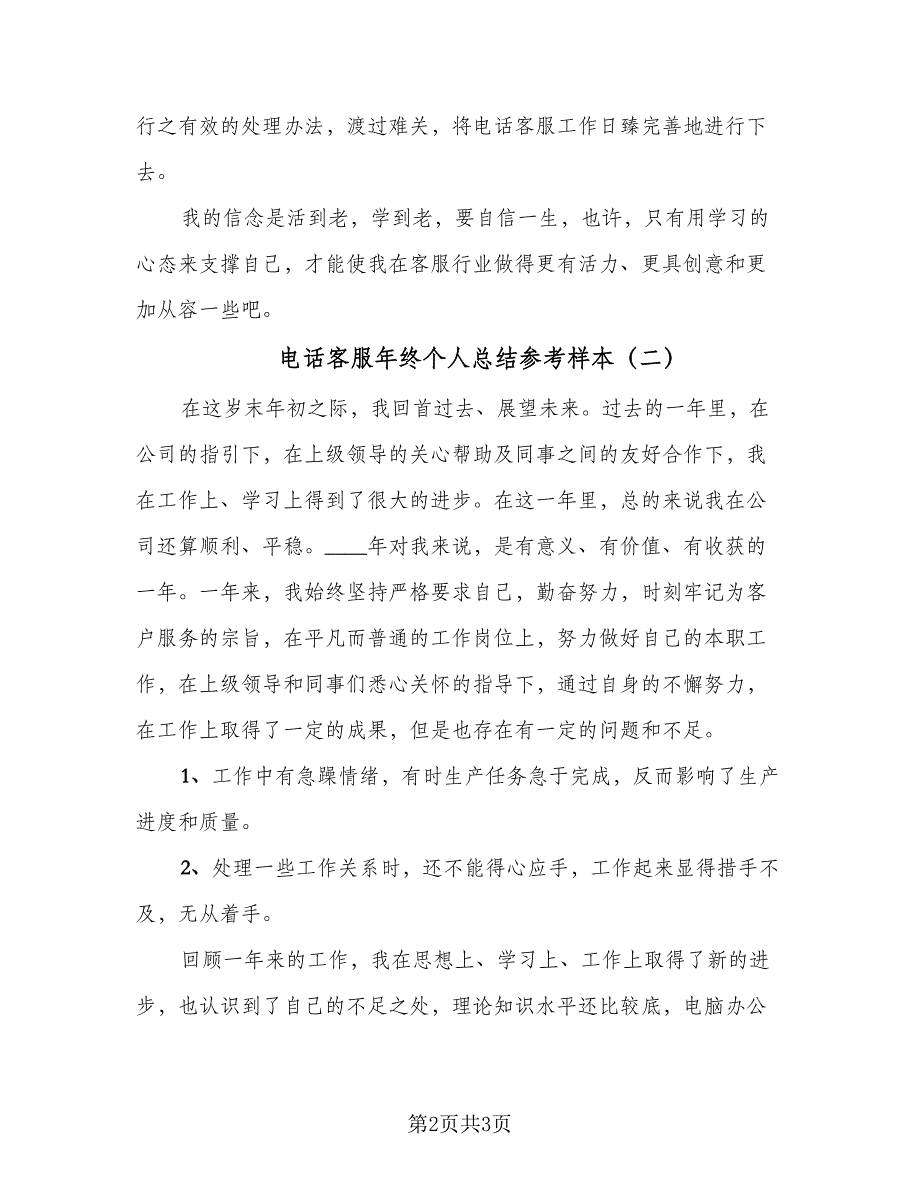 行之有效的处理办法，渡过难关，将电话客服工作日臻完善地进行下
去。
我的信念是活到老，学到老，要自信一生，也许，只有用学习的
心态来支撑自己，才能使我在客服行业做得更有活力、更具创意和更
加从容一些吧。
电话客服年终个人总结参考样本（二）
在这岁末年初之际，我回首过去、展望未来。过去的一年里，在
公司的指引下，在上级领导的关心帮助及同事之间的友好合作下，我
在工作上、学习上得到了很大的进步。在这一年里，总的来说我在公
司还算顺利、平稳。____年对我来说，是有意义、有价值、有收获的
一年。一年来，我始终坚持严格要求自己，勤奋努力，时刻牢记为客
户服务的宗旨，在平凡而普通的工作岗位上，努力做好自己的本职工
作，在上级领导和同事们悉心关怀的指导下，通过自身的不懈努力，
在工作上取得了一定的成果，但是也存在有一定的问题和不足。
1、工作中有急躁情绪，有时生产任务急于完成，反而影响了生产
进度和质量。
2、处理一些工作关系时，还不能得心应手，工作起来显得措手不
及，无从着手。
回顾一年来的工作，我在思想上、学习上、工作上取得了新的进
步，也认识到了自己的不足之处，理论知识水平还比较底，电脑办公
第2页共3页